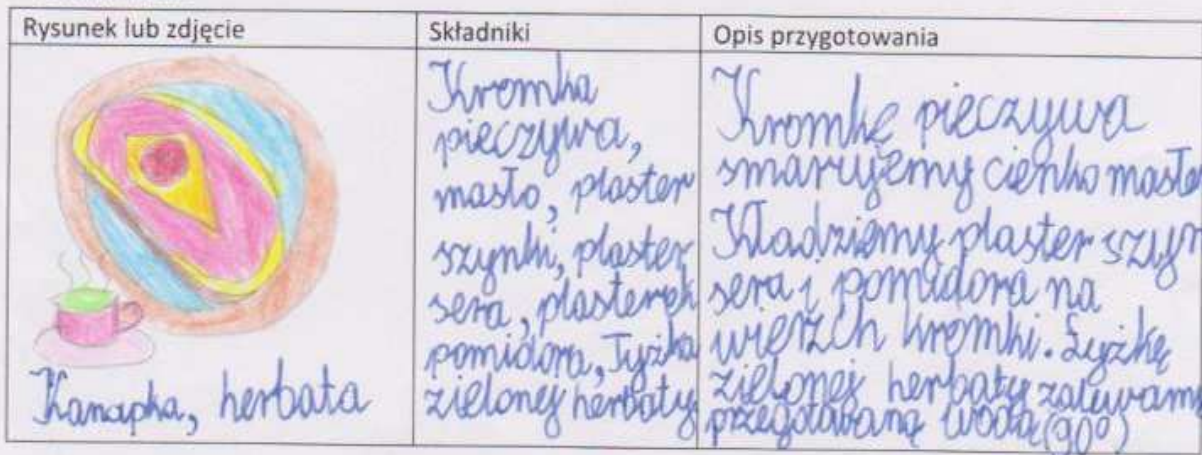 Rysunek lub zdjęcie
Kanapka, herbata
Składniki
Kromka
pieczywa,
masło, plaster
szynki, plaster
sera, plasterek
pomidora, Łyżka
zielonej herbaty
Opis przygotowania
Kromkę pieczywa
smarujemy cienko masłe
Kładziemy plaster szyn
sera i pomidora na
wierzch kromki. Łyżkę
zielonej herbaty zalewamy
przegotowaną wodą (90°)